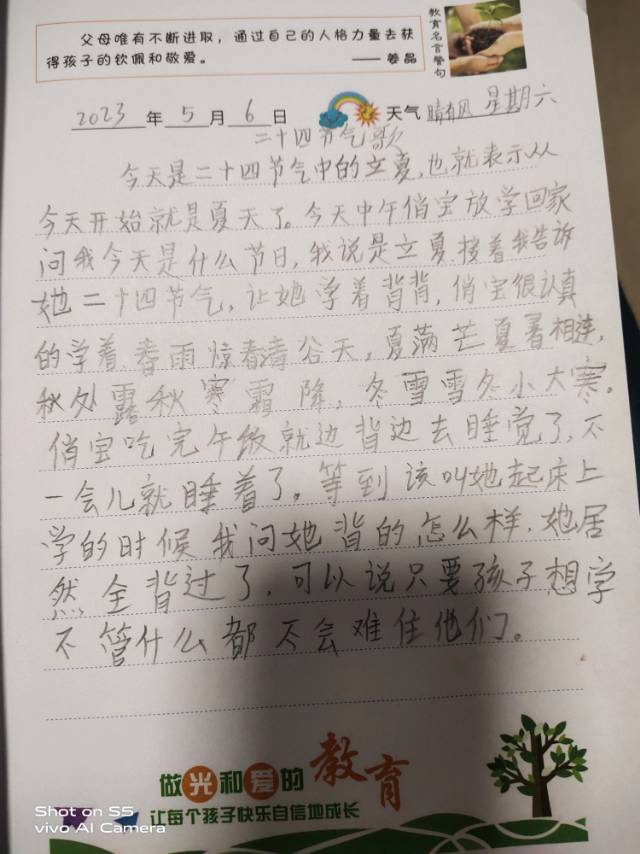 父母唯有不断进取，通过自己的人格力量去获
得孩子的钦佩和敬爱。 ——姜晶
教育名言警句
2023 年 5 月 6 日 天气 晴有风 星期六
二十四节气歌
今天是二十四节气中的立夏，也就表示从
今天开始就是夏天了。今天中午俏宝放学回家
问我今天是什么节日，我说是立夏接着我告诉
她二十四节气，让她学着背背，俏宝很认真
的学着春雨惊春清谷天，夏满芒夏暑相连，
秋处露秋寒霜降，冬雪雪冬小大寒。
俏宝吃完午饭就边背边去睡觉了，不
一会儿就睡着了。等到该叫她起床上
学的时候我问她背的怎么样，她居
然全背过了，可以说只要孩子想学
不管什么都不会难住他们。
做光和爱的教育
让每个孩子快乐自信地成长
Shot on S5
vivo AI Camera